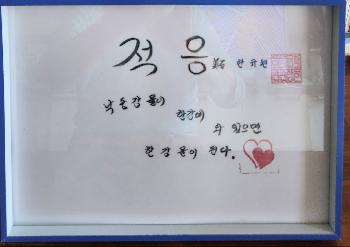 적응 한규원
낙동강물이
한강에
와 있으면
한강물이 된다.